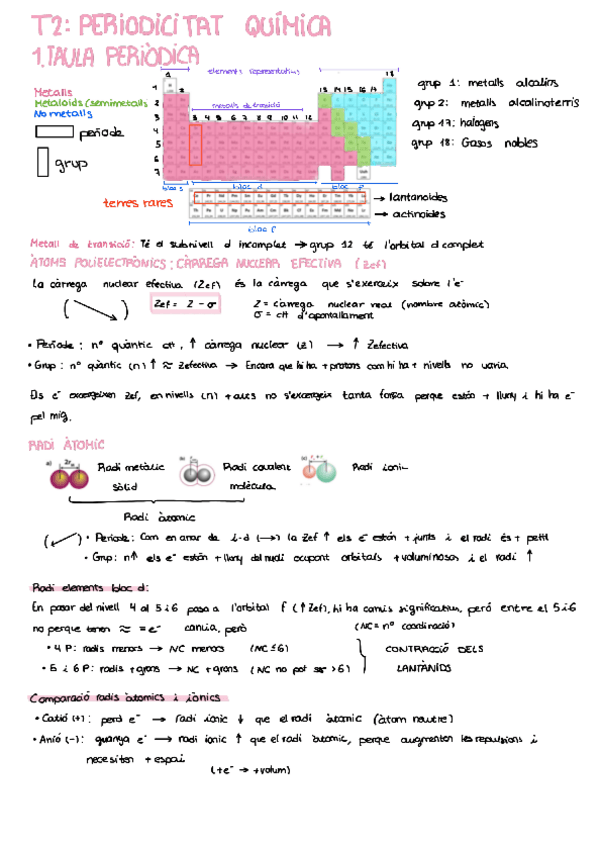 T2: PERIODICITAT QUÍMICA
1. TAULA PERIÒDICA
elements representatius
1 18
Metalls
Metaloids (semimetalls
No metalls
període
grup
metalls de transició
2 13 14 15 16 17
3 4 5 6 7 8 9 10 11 12
1
2
3
4
5
6
7
grup 1: metalls alcalins
grup 2: metalls alcalinoterris
grup 17: halògens
grup 18: Gasos nobles
bloc s bloc d bloc p
terres rares
→ lantanoides
→ actinoides
bloc f
Metall de transició: Té el subnivell d incomplet → grup 12 té l'orbital d complet
ÀTOMS POLIELECTRÒNICS: CÀRREGA NUCLEAR EFECTIVA (Zef)
La càrrega nuclear efectiva (Zef) és la càrrega que s'exerceix sobre l'e⁻
Zef = Z - σ
Z = càrrega nuclear real (nombre atòmic)
σ = ctt d'apantallament
• Període: nº quàntic ctt, ↑ càrrega nuclear (Z) → ↑ Zefectiva
• Grup: nº quàntic (n) ↑ ≈ Zefectiva → Encara que hi ha + protons com hi ha + nivells no varia.
Els e⁻ Zef, en nivells (n) + alts no s'exerceix tanta força perquè estan + lluny i hi ha e⁻
pel mig.
RADI ÀTOMIC
a) Radi metàlic
sòlid
b) Radi covalent
molècula
c) Radi iònic
Radi atòmic
• Període: Com en anar de i-d (→) la Zef ↑ els e⁻ estan + junts i el radi és + petit
• Grup: n↑ els e⁻ estan + lluny del nucli ocupant orbitals + voluminosos i el radi ↑
Radi elements bloc d:
En passar del nivell 4 al 5 i 6 passa a l'orbital f (↑ Zef), hi ha canvis significatius, però entre el 5 i 6
no perquè tenen ≈ = e⁻ canvia, però (NC = nº coordinació)
• 4 P: radis menors → NC menors (NC ≤ 6)
• 5 i 6 P: radis + grans → NC + grans (NC no pot ser > 6)
CONTRACCIÓ DELS
LANTÀNIDS
Comparació radis atòmics i iònics
• Catió (+): perd e⁻ → radi iònic ↓ que el radi atòmic (àtom neutre)
• Anió (-): guanya e⁻ → radi iònic ↑ que el radi atòmic, perquè augmenten les repulsions i
necessiten + espai
(+e⁻ → + volum)